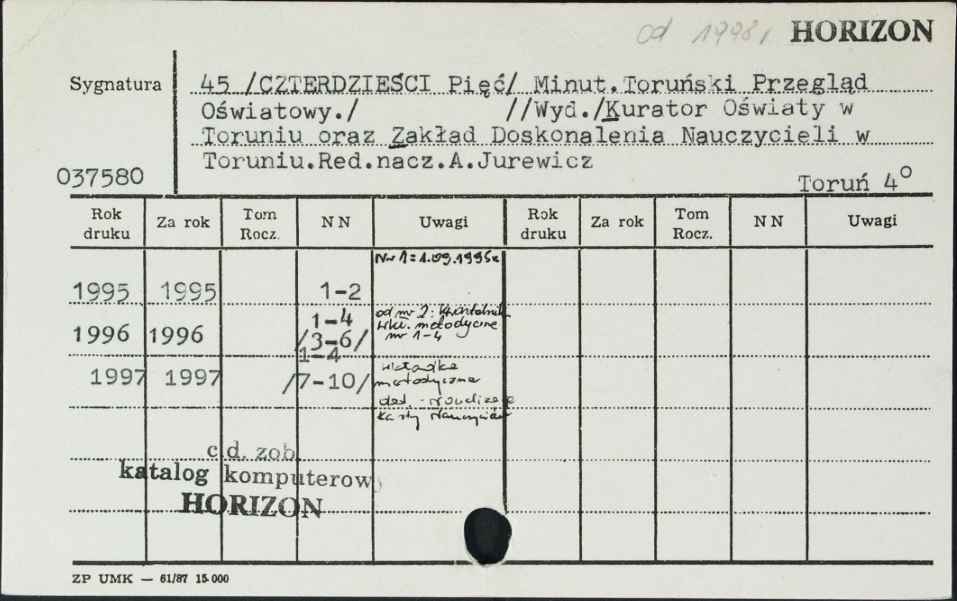 od 1998, HORIZON
Sygnatura 45 /CZTERDZIEŚCI Pięć/ Minut.Toruński Przegląd
Oświatowy./ //Wyd./Kurator Oświaty w
Toruniu oraz Zakład Doskonalenia Nauczycieli w
Toruniu.Red.nacz.A.Jurewicz
037580 Toruń 4°
Rok druku Za rok Tom Rocz. N N Uwagi Rok druku Za rok Tom Rocz. N N Uwagi
Nr 1 = 1.09.1995r
1995 1995 1-2
1-4 od nr 2: Kwartalnik
1996 1996 /3-6/ wkł. metodyczne
nr 1-4
1-4
1997 1997 /7-10/ wkładka
metodyczna
dod.
Karty
c.d. zob.
katalog komputerowy
HORIZON
ZP UMK — 61/87 15.000